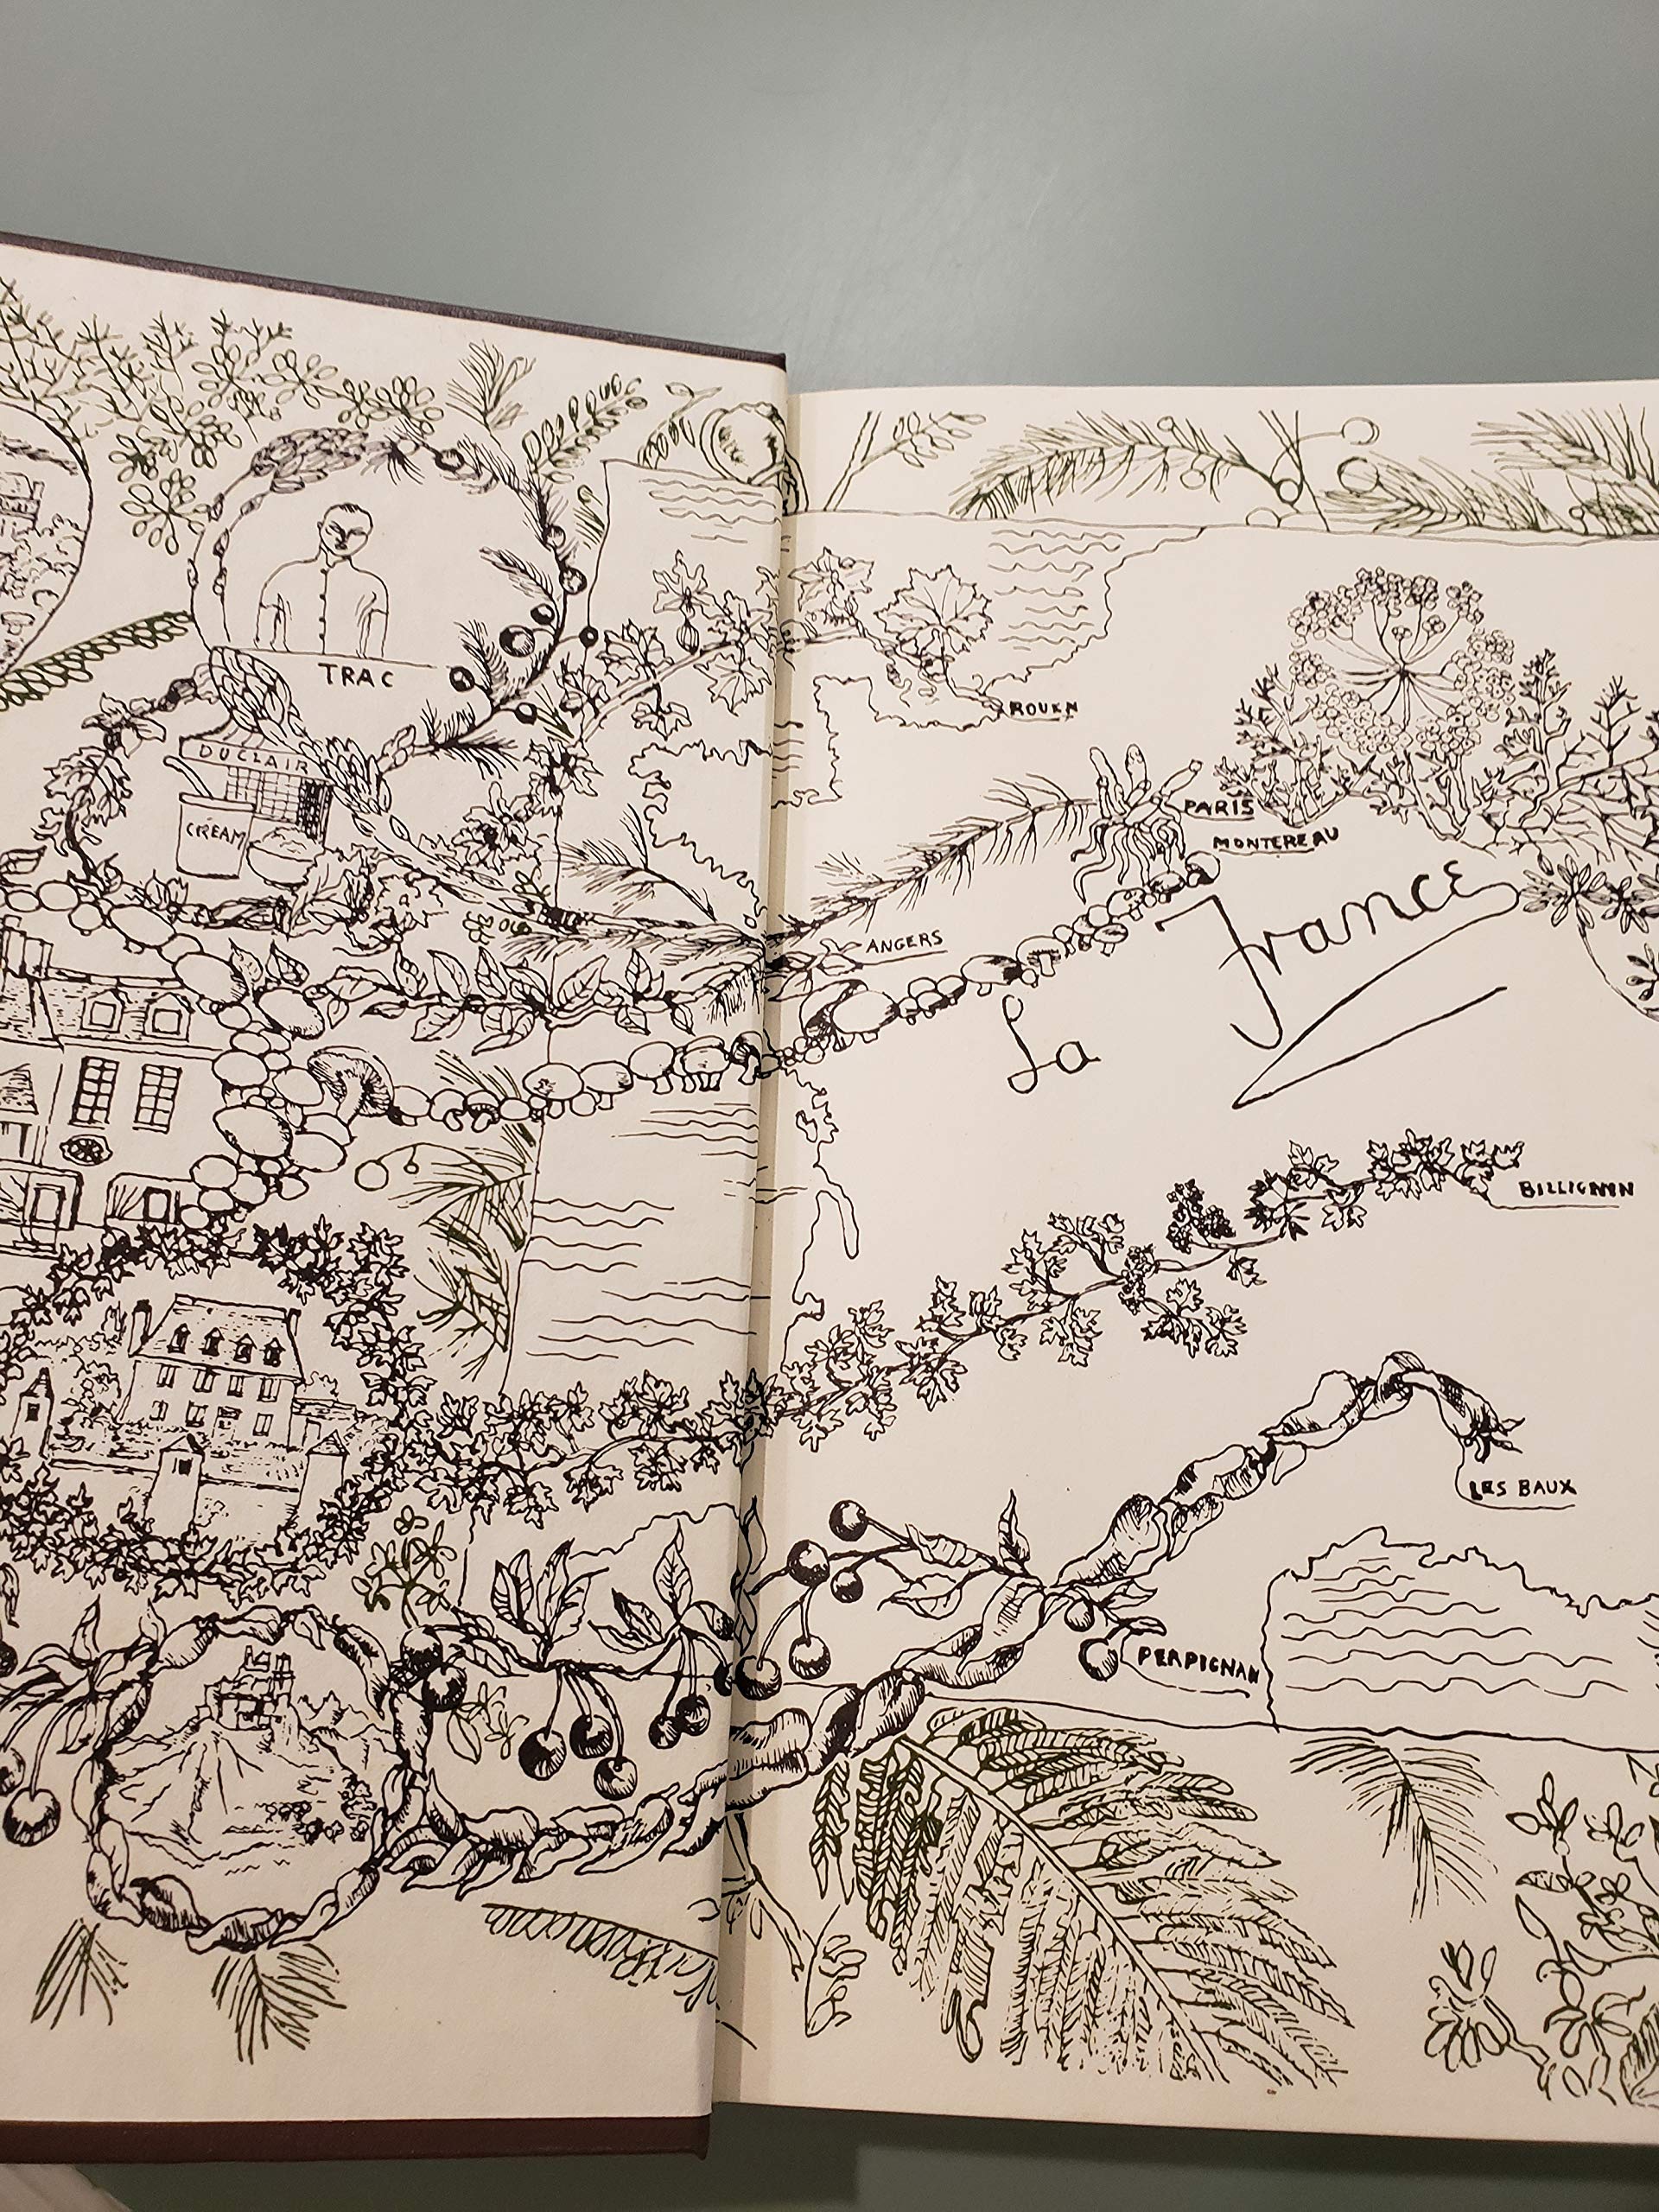 TRAC
DUCLAIR
CREAM
ROUEN
PARIS
MONTEREAU
ANGERS
La France
BILLIGNIN
LES BAUX
PERPIGNAN